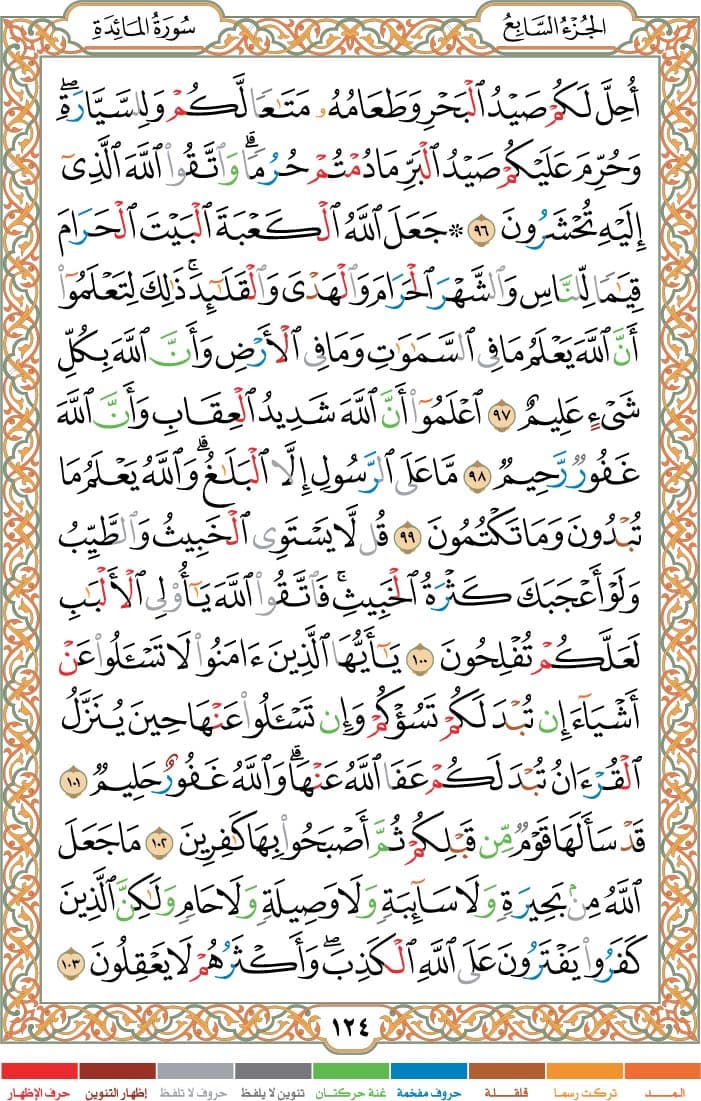 الجُزْءُ السَّابِعُ
سُورَةُ المَائِدَةِ
أُحِلَّ لَكُمْ صَيْدُ ٱلْبَحْرِ وَطَعَامُهُۥ مَتَٰعٗا لَّكُمْ وَلِلسَّيَّارَةِۖ
وَحُرِّمَ عَلَيْكُمْ صَيْدُ ٱلْبَرِّ مَا دُمْتُمْ حُرُمٗاۗ وَٱتَّقُوا۟ ٱللَّهَ ٱلَّذِىٓ
إِلَيْهِ تُحْشَرُونَ ٩٦ ۞ جَعَلَ ٱللَّهُ ٱلْكَعْبَةَ ٱلْبَيْتَ ٱلْحَرَامَ
قِيَٰمٗا لِّلنَّاسِ وَٱلشَّهْرَ ٱلْحَرَامَ وَٱلْهَدْىَ وَٱلْقَلَٰٓئِدَۚ ذَٰلِكَ لِتَعْلَمُوٓا۟
أَنَّ ٱللَّهَ يَعْلَمُ مَا فِى ٱلسَّمَٰوَٰتِ وَمَا فِى ٱلْأَرْضِ وَأَنَّ ٱللَّهَ بِكُلِّ
شَىْءٍ عَلِيمٌ ٩٧ ٱعْلَمُوٓا۟ أَنَّ ٱللَّهَ شَدِيدُ ٱلْعِقَابِ وَأَنَّ ٱللَّهَ
غَفُورٞ رَّحِيمٞ ٩٨ مَّا عَلَى ٱلرَّسُولِ إِلَّا ٱلْبَلَٰغُۗ وَٱللَّهُ يَعْلَمُ مَا
تُبْدُونَ وَمَا تَكْتُمُونَ ٩٩ قُل لَّا يَسْتَوِى ٱلْخَبِيثُ وَٱلطَّيِّبُ
وَلَوْ أَعْجَبَكَ كَثْرَةُ ٱلْخَبِيثِۚ فَٱتَّقُوا۟ ٱللَّهَ يَٰٓأُو۟لِى ٱلْأَلْبَٰبِ
لَعَلَّكُمْ تُفْلِحُونَ ١٠٠ يَٰٓأَيُّهَا ٱلَّذِينَ ءَامَنُوا۟ لَا تَسْـَٔلُوا۟ عَنْ
أَشْيَآءَ إِن تُبْدَ لَكُمْ تَسُؤْكُمْ وَإِن تَسْـَٔلُوا۟ عَنْهَا حِينَ يُنَزَّلُ
ٱلْقُرْءَانُ تُبْدَ لَكُمْ عَفَا ٱللَّهُ عَنْهَاۗ وَٱللَّهُ غَفُورٌ حَلِيمٞ ١٠١
قَدْ سَأَلَهَا قَوْمٞ مِّن قَبْلِكُمْ ثُمَّ أَصْبَحُوا۟ بِهَا كَٰفِرِينَ ١٠٢ مَا جَعَلَ
ٱللَّهُ مِنۢ بَحِيرَةٖ وَلَا سَآئِبَةٖ وَلَا وَصِيلَةٖ وَلَا حَامٖ وَلَٰكِنَّ ٱلَّذِينَ
كَفَرُوا۟ يَفْتَرُونَ عَلَى ٱللَّهِ ٱلْكَذِبَۖ وَأَكْثَرُهُمْ لَا يَعْقِلُونَ ١٠٣
١٢٤
المــد تركت رسما قلقلة حروف مفخمة غنة حركتان تنوين لا يلفظ حروف لا تلفظ إظهار التنوين حرف الإظهار